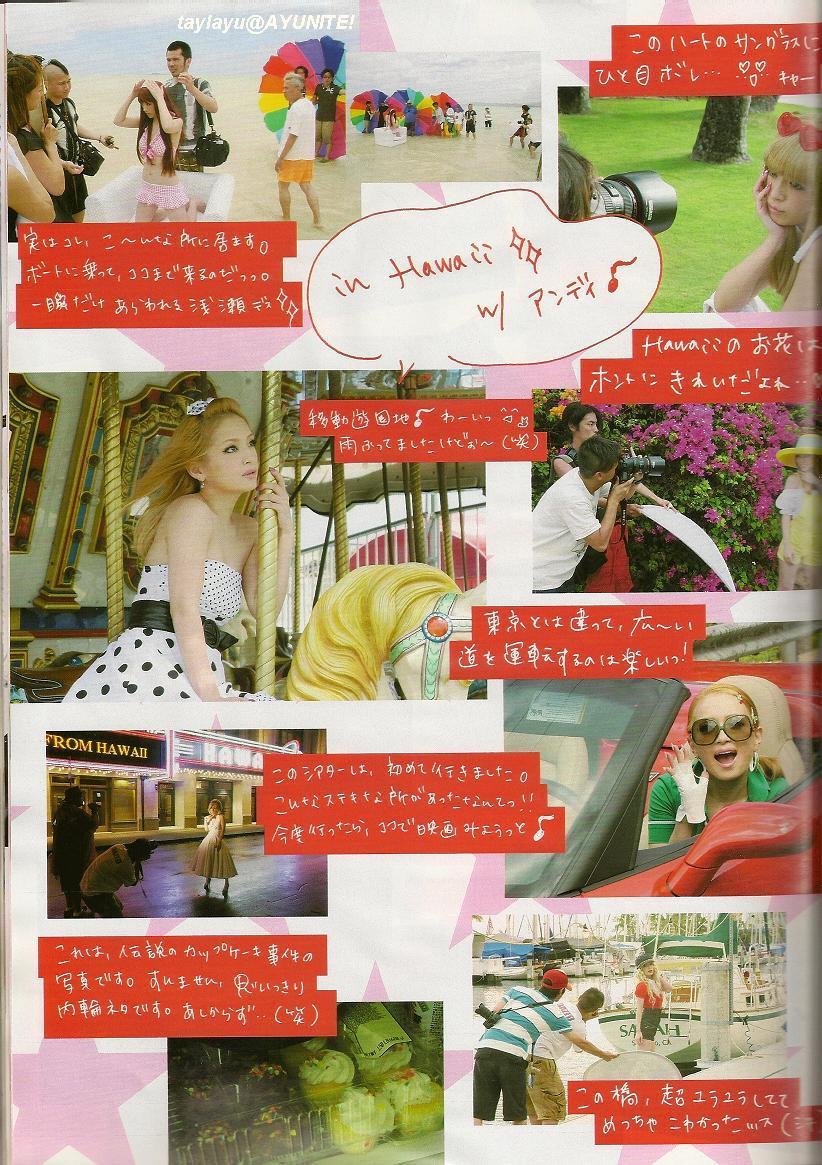 taylayu@AYUNITE!
このハートのサングラスに
ひと目ボレ… ♡♡♡ キャー
実はコレ、こ〜んな所に居ます。
ボートに乗って、ココまで来るのだっっ。
一瞬だけあらわれる浅瀬デス
in Hawaii
w/ アンディ♪
Hawaiiのお花は
ホントにきれいだよね…
移動遊園地♪わーいっ
雨ふってましたけどぉ〜(笑)
東京とは違って、広〜い
道を運転するのは楽しいっ!
FROM HAWAII
このシアターは、初めて行きました。
こんなステキな所があったなんてっ!!
今度行ったら、ココで映画みようっと♪
これは、伝説のカップケーキ事件の
写真です。すいません、思いっきり
内輪ネタです。あしからず…(笑)
SARAH
, CA
この橋、超ユラユラしてて
めっちゃこわかったッス(汗